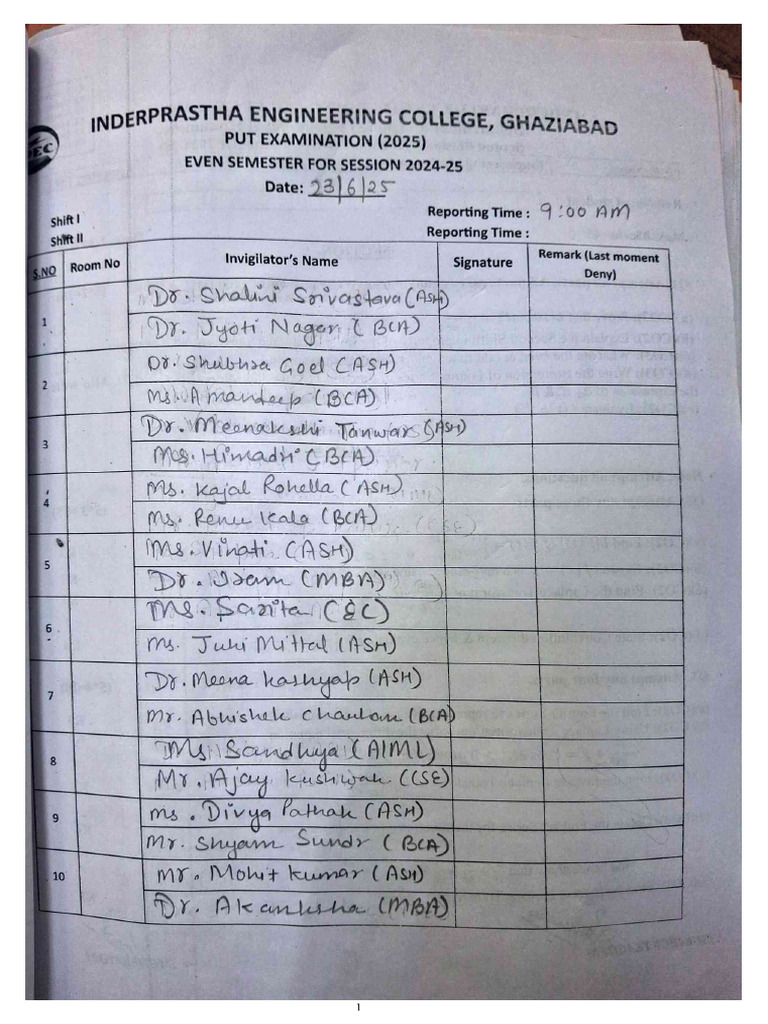 INDERPRASTHA ENGINEERING COLLEGE, GHAZIABAD
PUT EXAMINATION (2025)
EVEN SEMESTER FOR SESSION 2024-25
Date: 23/6/25
Shift I Reporting Time : 9:00 AM
Shift II Reporting Time :
S.NO Room No Invigilator's Name Signature Remark (Last moment Deny)
1 Dr. Shalini Srivastava (ASH)
Dr. Jyoti Nagar (BCA)
2 Dr. Shubhra Goel (ASH)
Ms. Amandeep (BCA)
3 Dr. Meenakshi Tanwar (ASH)
Ms. Himadri (BCA)
4 Ms. Kajal Rohella (ASH)
Ms. Renu Kala (BCA)
5 Ms. Vinati (ASH)
Dr. Iram (MBA)
6 Ms. Sarita (EC)
Ms. Juhi Mittal (ASH)
7 Dr. Meena Kashyap (ASH)
Mr. Abhishek Chauhan (BCA)
8 Ms Sandhya (AIML)
Mr. Ajay Kushwah (CSE)
9 Ms. Divya Pathak (ASH)
Mr. Shyam Sundr (BCA)
10 Mr. Mohit Kumar (ASH)
Dr. Akanksha (MBA)
1